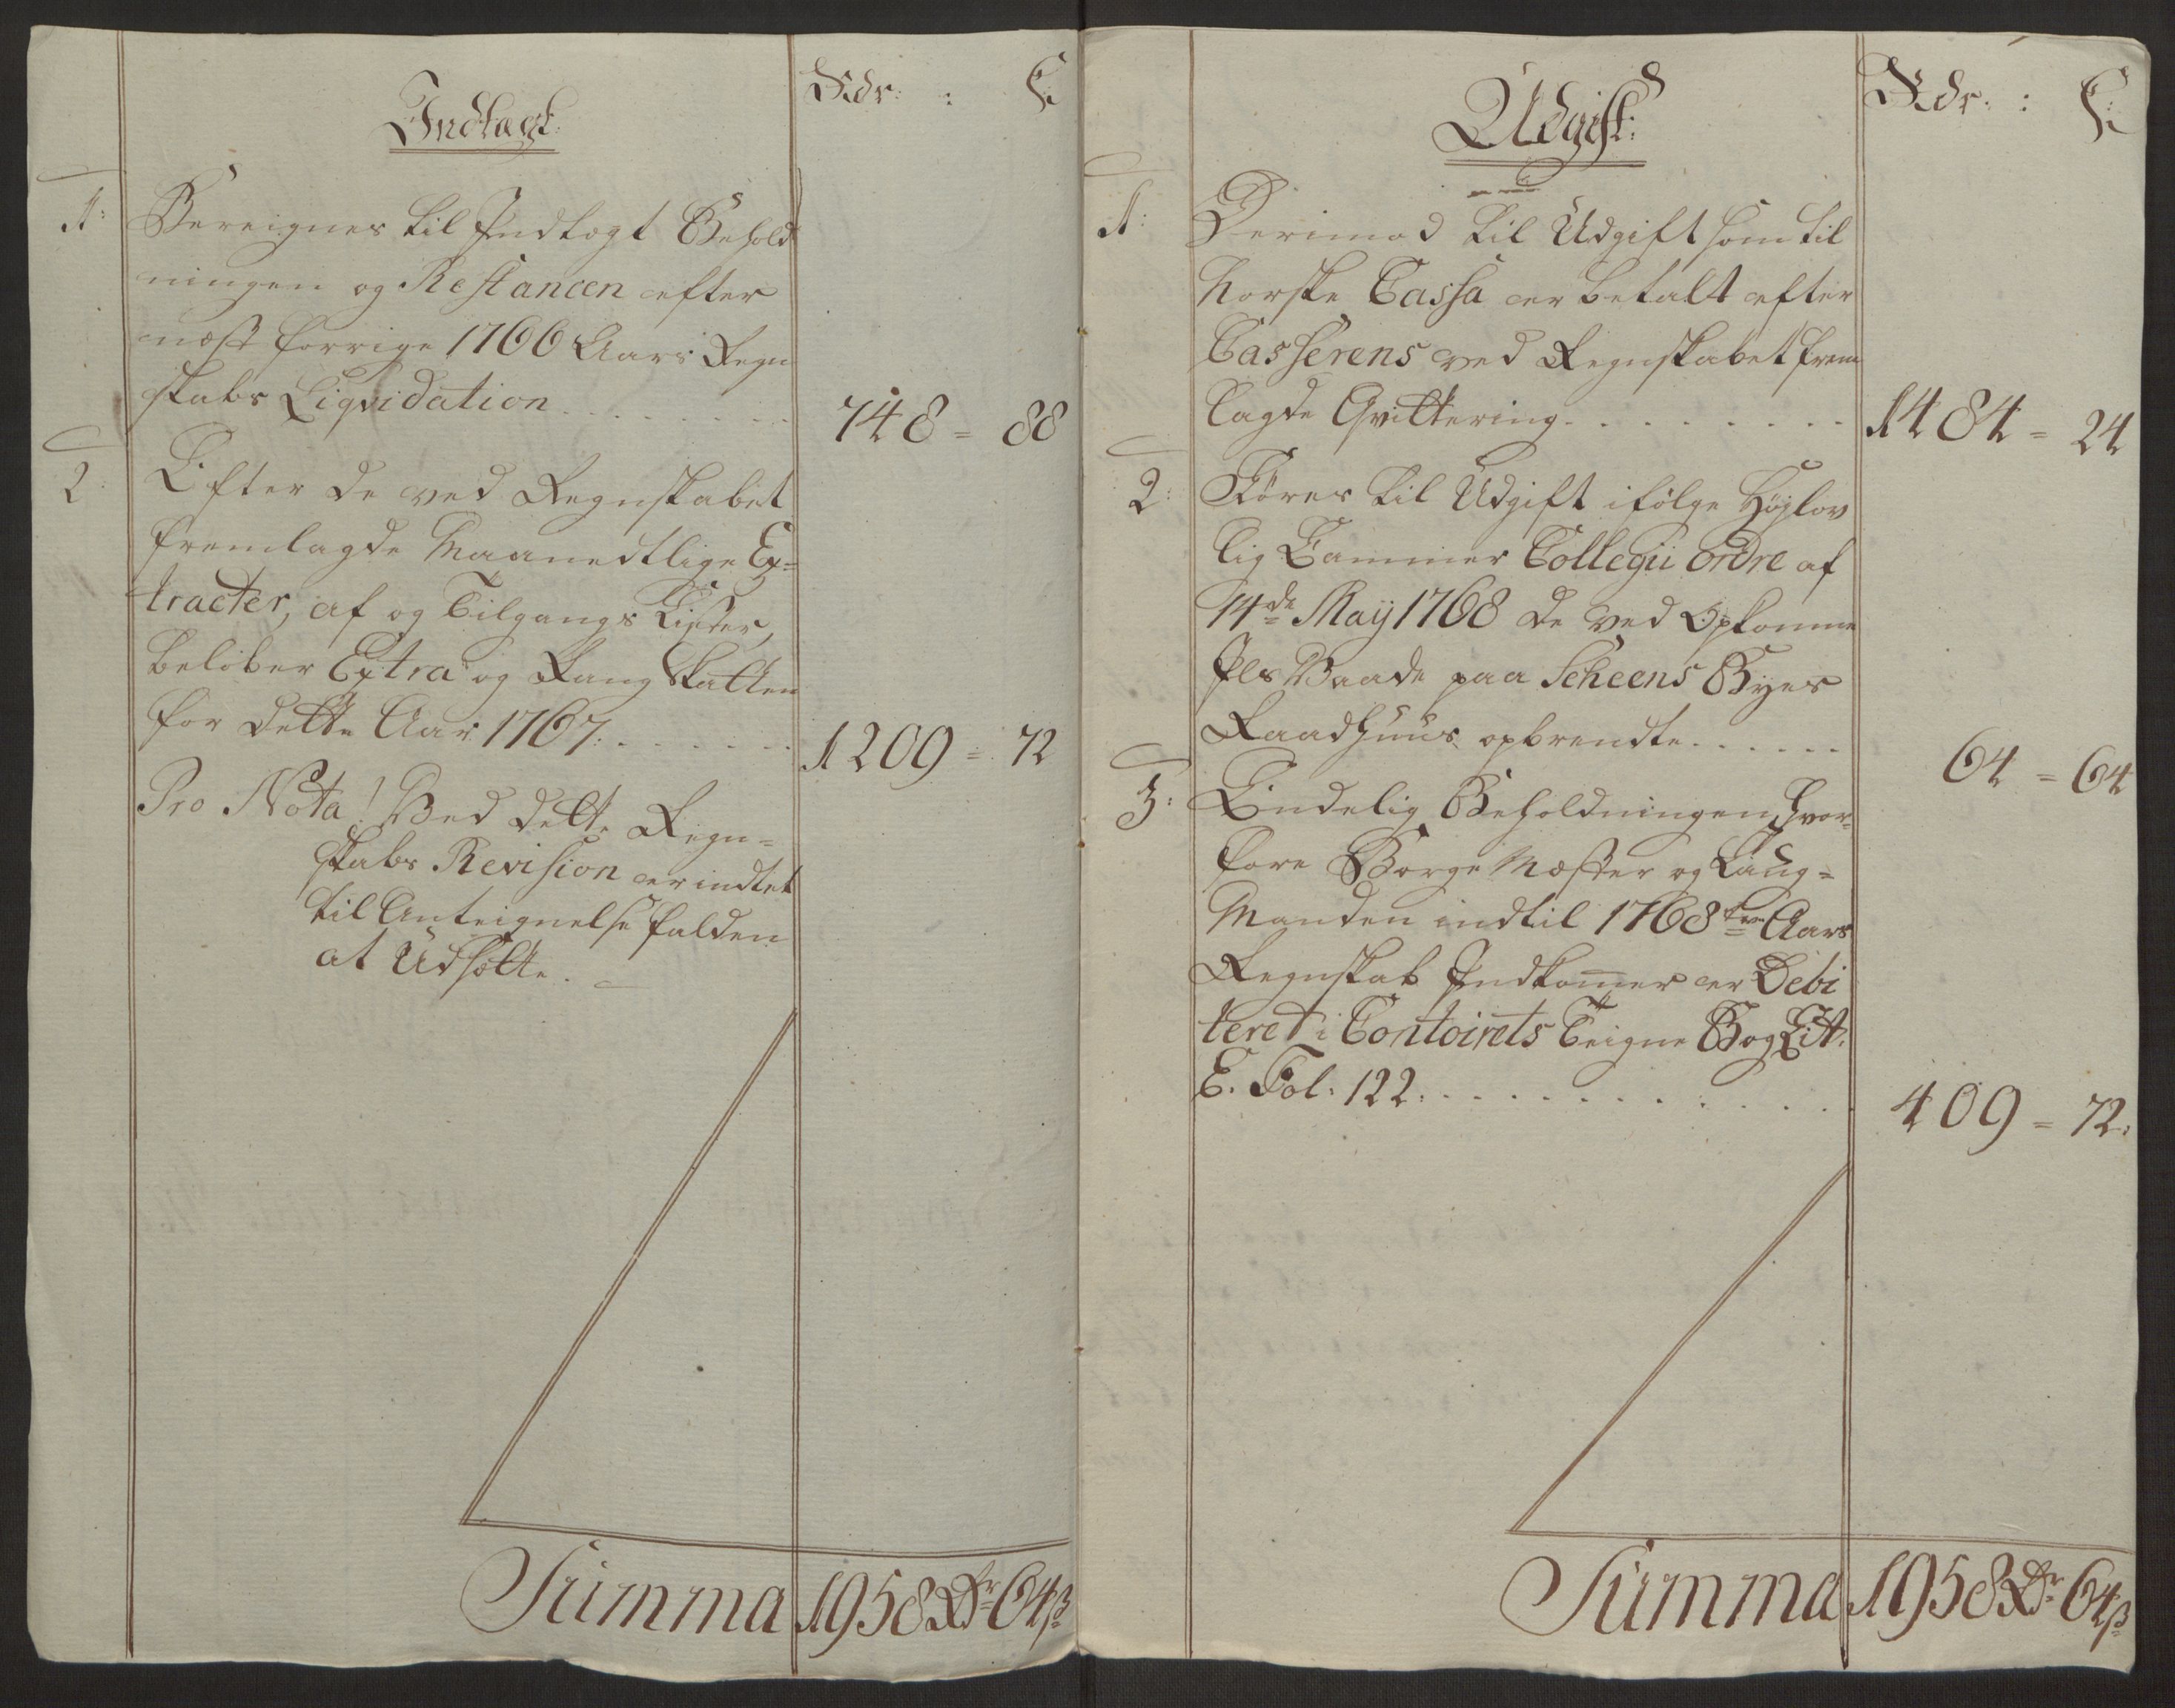 Indtægt:
Rdr: : ß
1: Bereignes til Indtægt Behold
ningen og Restancen efter
næst forrige 1766 Aars Regn
skabs Liqvidation ........ 748 = 88
2: Efter de ved Regnskabet
fremlagde Maanedtlige Ex=
tracter, af og Tilgangs Lister,
beløber Extra og Rang Skatten
for dette Aar 1767: ....... 1209 = 72
Pro Nota! Ved dette Regn=
skabs Revision er indtet
til Anteignelse falden
at Udsætte.
Summa 1958 Rdr 64 ß
Udgift:
Rdr: : ß
1: Derimod til Udgift som til
Norske Cassa er betalt efter
Casserens ved Regnskabet frem
lagde Qvittering ......... 1484 = 24
2: Føres til Udgift ifølge Høylov
lig Cammer Collegii ordre af
14de Maÿ 1768 de ved Opkomme
Ils Vaade paa Scheens Byes
Raadhuus opbrendte ...... 64 = 64
3: Endelig Beholdningen, hvor=
fore Borge Mester og Laug=
Manden indtil 1768ten Aars
Regnskab Indkommer er Debi
teret i Contoirets Teigne Bog Litt.
E. Fol: 122: ............ 409 = 72:
Summa 1958 Rdr 64 ß